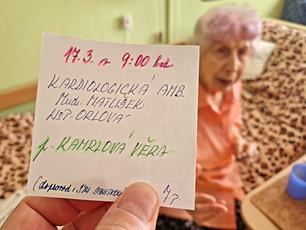 17.3. v 9:00 hod
KARDIOLOGICKÁ AMB.
MUDr. MATUŠEK
NSP. ORLOVÁ
p. KAMRLOVÁ VĚRA
(doprovod :